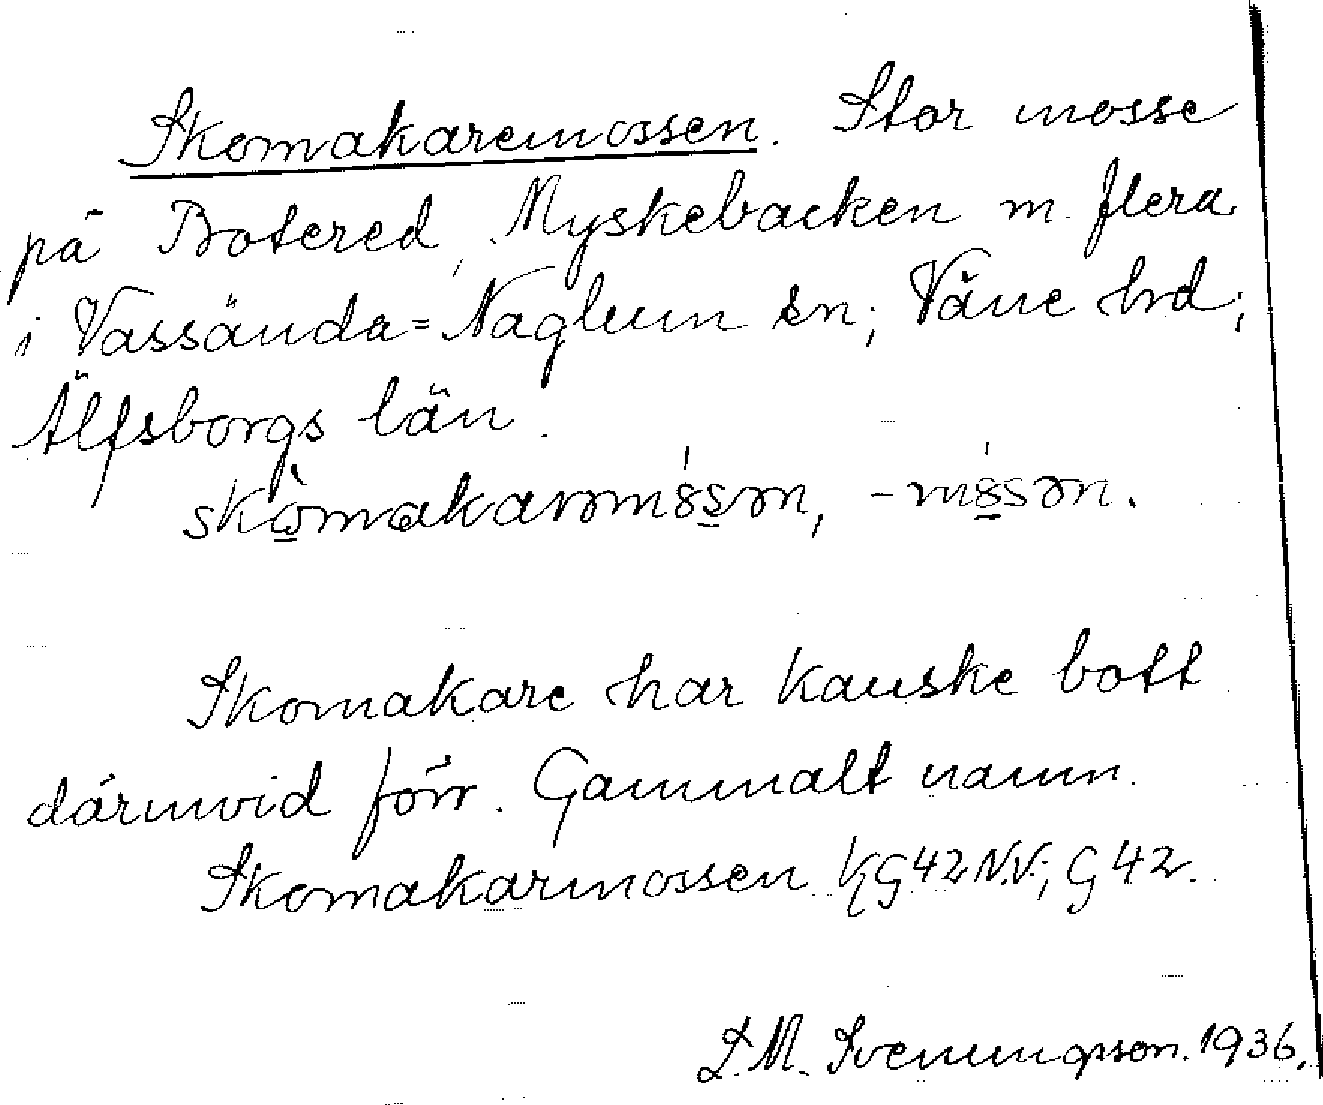 Skomakaremossen. Stor mosse
på Botered, Myskebacken m. flera
i Vassända=Naglum sn; Väne hrd;
Älfsborgs län.
Skomakare har kanske bott
därinvid förr. Gammalt namn.
Skomakarmossen KG42N.V.; G42.
S.M. Svenungsson. 1936.